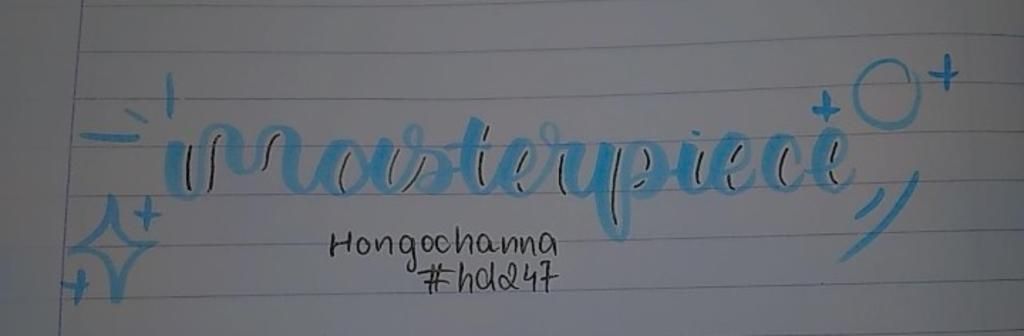 masterpiece
Hongochanna
#hd247